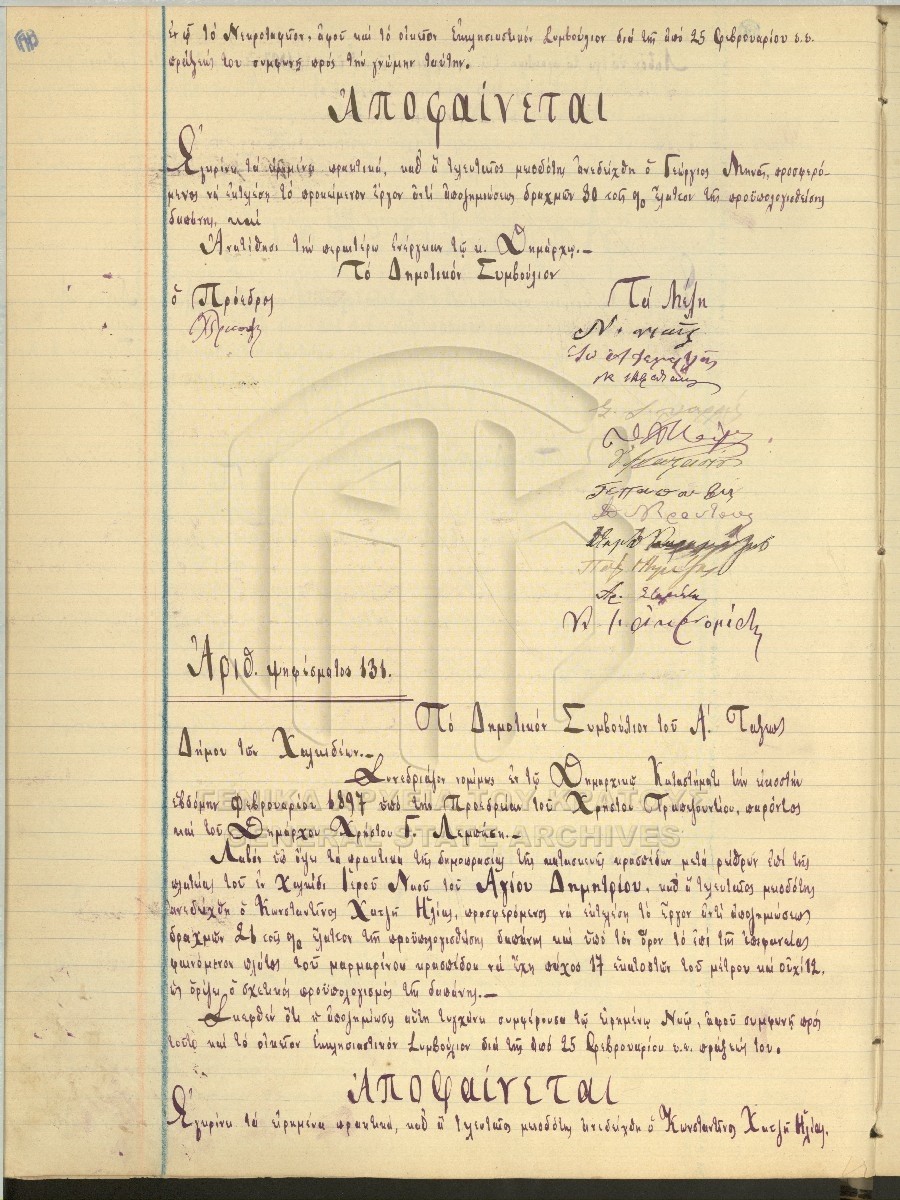 ἐν ᾧ τὸ Νεκροταφεῖον, ἀφοῦ καὶ τὸ οἰκεῖον Ἐκκλησιαστικόν Συμβούλιον διὰ τῆς ἀπό 25 Φεβρουαρίου ε.ε.
πράξεώς του συμφωνεῖ πρός τὴν γνώμην ταύτην.
Ἀποφαίνεται
Ἐγκρίνει τὰ εἰρημένα πρακτικά, καθ' ἃ τελευταῖος μειοδότης ἀνεδείχθη ὁ Γεώργιος Μηνᾶς, προσφερό-
μενος νὰ ἐκτελέση τὸ προκείμενον ἔργον ἀντὶ ἀποζημιώσεως δραχμῶν 30 τοῖς % ἔλαττον τῆς προϋπολογισθείσης
δαπάνης, καί
Ἀνατίθησι τὴν περαιτέρω ἐνέργειαν τῷ κ. Δημάρχῳ.—
Τό Δημοτικόν Συμβούλιον
ὁ Πρόεδρος
Τά Μέλη
Ἀριθ. ψηφίσματος 131.
Τό Δημοτικόν Συμβούλιον τοῦ Α΄. Τάξεως
Δήμου τῶν Χαλκιδέων.—
Συνεδριάζον νομίμως ἐν τῷ Δημαρχικῷ Καταστήματι τὴν εἰκοστήν
ἑβδόμην Φεβρουαρίου 1897 ὑπό τὴν Προεδρείαν τοῦ Χρήστου Τραπεζουντίου, παρόντος
καὶ τοῦ Δημάρχου Χρήστου Γ. Λεμπέση.—
ΓΕΝΙΚΑ ΑΡΧΕΙΑ ΤΟΥ ΚΡΑΤΟΥΣ
GENERAL STATE ARCHIVES
Λαβόν ὑπ' ὄψει τὰ πρακτικά τῆς δημοπρασίας τῆς κατασκευῆς κρασπέδων μετά ρείθρων ἐπί τῆς
πλατείας τοῦ ἐν Χαλκίδι Ἱεροῦ Ναοῦ τοῦ Ἁγίου Δημητρίου, καθ' ἃ τελευταῖος μειοδότης
ἀνεδείχθη ὁ Κωνσταντῖνος Χατζῆ Ἠλίας, προσφερόμενος νὰ ἐκτελέση τὸ ἔργον ἀντί ἀποζημιώσεως
δραχμῶν 21 τοῖς % ἔλαττον τῆς προϋπολογισθείσης δαπάνης καὶ ὑπό τὸν ὅρον τὸ ἐπί τῆς ἐπιφανείας
φαινόμενον πλάτος τοῦ μαρμαρίνου κρασπέδου νὰ ἔχη πάχος 17 ἑκατοστῶν τοῦ μέτρου καὶ οὐχί 12.
ὡς ὁρίζει ὁ σχετικός προϋπολογισμός τῆς δαπάνης.—
Σκεφθέν ὅτι ἡ ἀποζημίωσις αὕτη τυγχάνει συμφέρουσα τῷ εἰρημένῳ Ναῷ, ἀφοῦ συμφωνεῖ πρός
τοῦτο καὶ τὸ οἰκεῖον Ἐκκλησιαστικόν Συμβούλιον διά τῆς ἀπό 25 Φεβρουαρίου ε.ε. πράξεώς του.
Ἀποφαίνεται
Ἐγκρίνει τὰ εἰρημένα πρακτικά, καθ' ἃ τελευταῖος μειοδότης ἀνεδείχθη ὁ Κωνσταντῖνος Χατζῆ Ἠλίας,